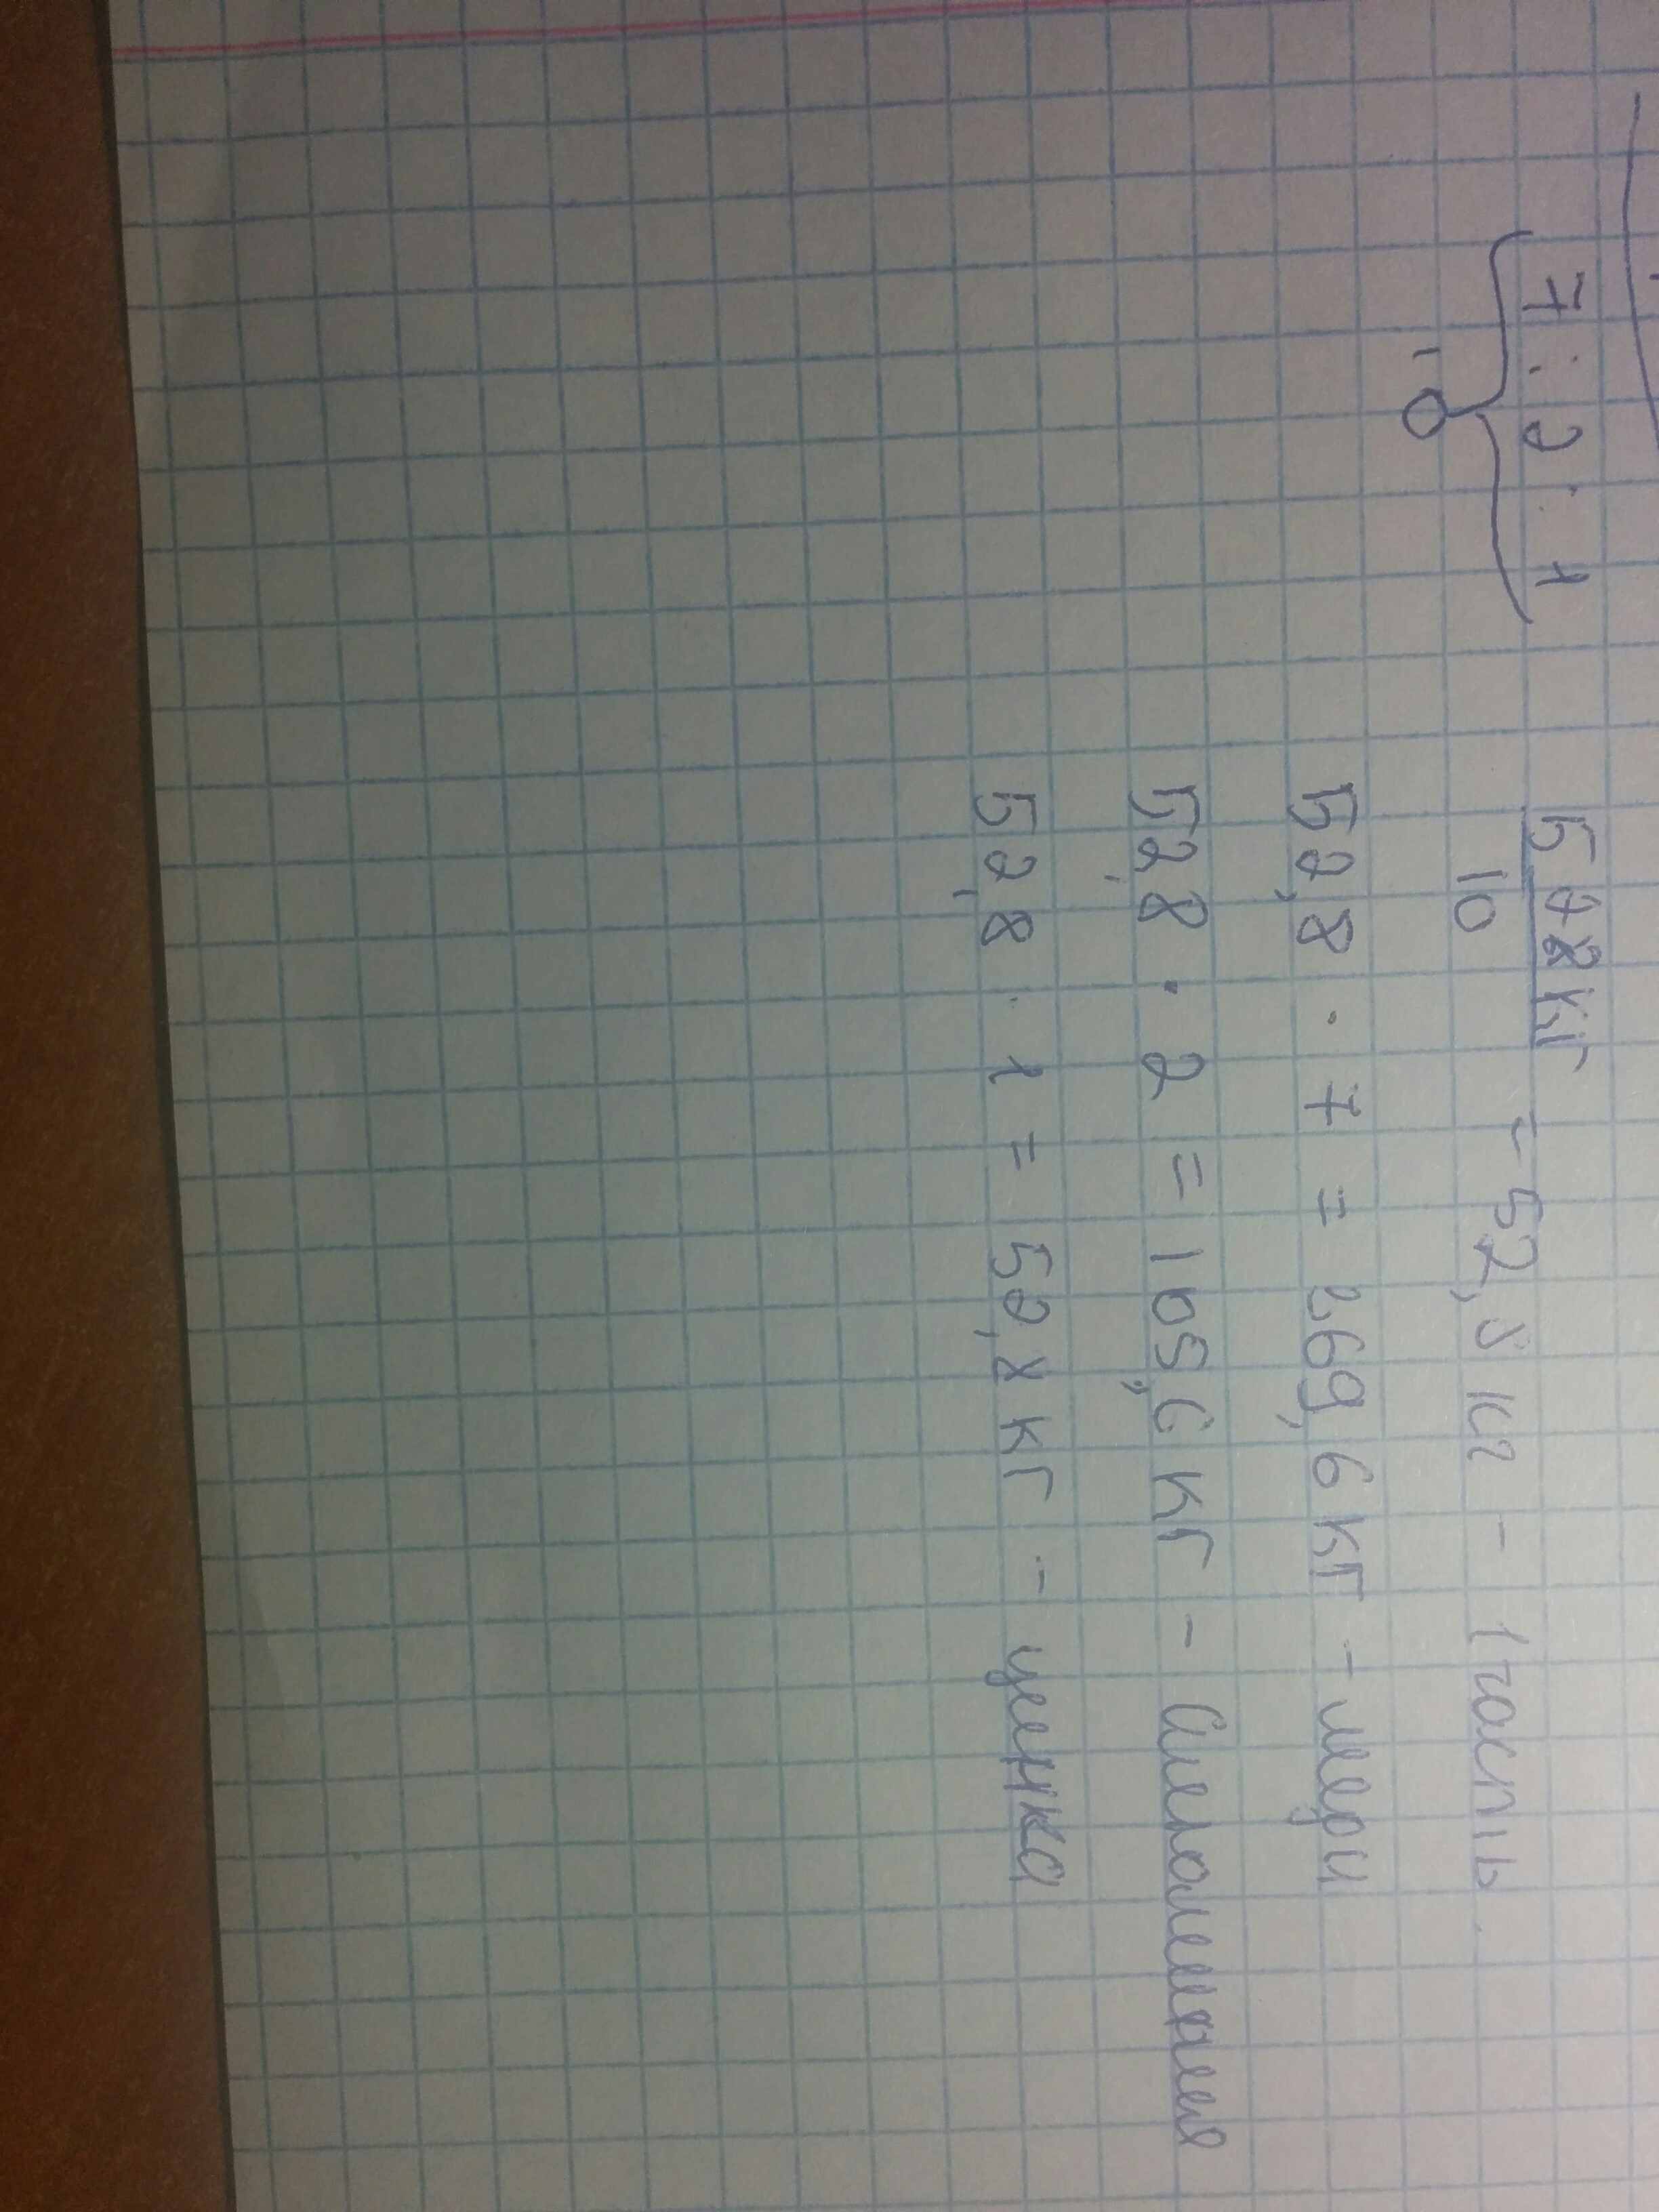 7 : 2 : 1
10
528 кг
10
= 52,8 кг - 1 часть.
52,8 · 7 = 369,6 кг - меди
52,8 · 2 = 105,6 кг - Алюминия
52,8 · 1 = 52,8 кг - цинка